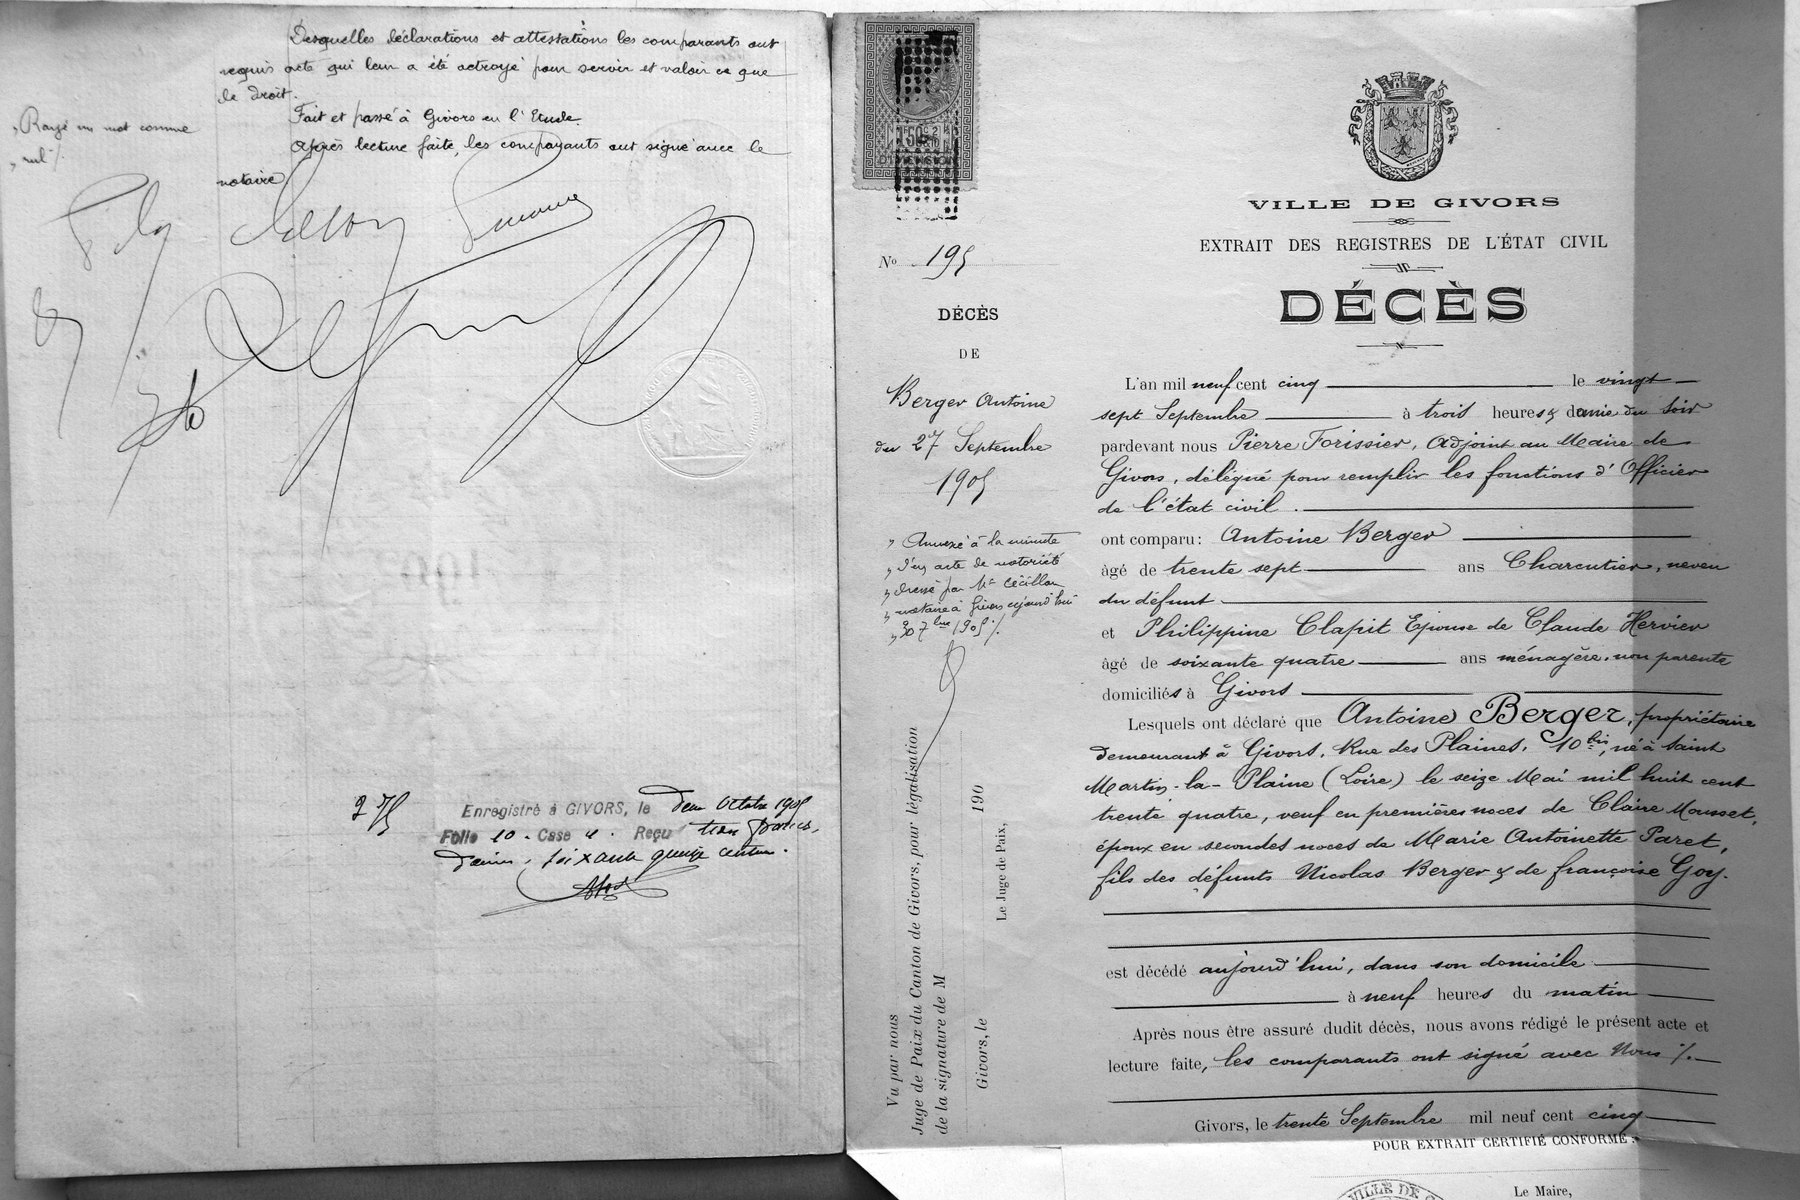 Desquelles déclarations et attestations les comparants ont
requis acte qui leur a été octroyé pour servir et valoir ce que
de droit.
Fait et passé à Givors en l'Etude.
Après lecture faite, les comparants ont signé avec le
notaire
Rayé un mot comme
nul
275
Enregistré à GIVORS, le deux Octobre 1905
Folio 10 Case 4 Reçu trois francs,
soixante quinze centimes.
No 195
DÉCÈS
DE
Berger Antoine
du 27 Septembre
1905
" Annexé à la minute
" d'un acte de notoriété
" dressé par Me
" notaire à Givors aujourd'hui
" 30 7bre 1905 ./.
Vu par nous
Juge de Paix du Canton de Givors, pour légalisation
de la signature de M
Givors, le 190
Le Juge de Paix,
VILLE DE GIVORS
EXTRAIT DES REGISTRES DE L'ÉTAT CIVIL
DÉCÈS
L'an mil neuf cent cinq le vingt
sept Septembre à trois heures & demie du soir
pardevant nous Pierre Forissier, adjoint au Maire de
Givors, délégué pour remplir les fonctions d'Officier
de l'état civil.
ont comparu: Antoine Berger
âgé de trente sept ans Charcutier, neveu
du défunt
et Philippine Clapit Epouse de Claude Hervier
âgé de soixante quatre ans ménagère, non parente
domiciliés à Givors
Lesquels ont déclaré que Antoine Berger, propriétaire
demeurant à Givors, Rue des Plaines, 10 bis, né à Saint
Martin-la-Plaine (Loire) le seize Mai mil huit cent
trente quatre, veuf en premières noces de Claire Mousset,
époux en secondes noces de Marie Antoinette Paret,
fils des défunts Nicolas Berger & de françoise Goy.
est décédé aujourd'hui, dans son domicile
à neuf heures du matin
Après nous être assuré dudit décès, nous avons rédigé le présent acte et
lecture faite, les comparants ont signé avec Nous ./.
Givors, le trente Septembre mil neuf cent cinq
POUR EXTRAIT CERTIFIÉ CONFORME:
Le Maire,
VILLE DE G